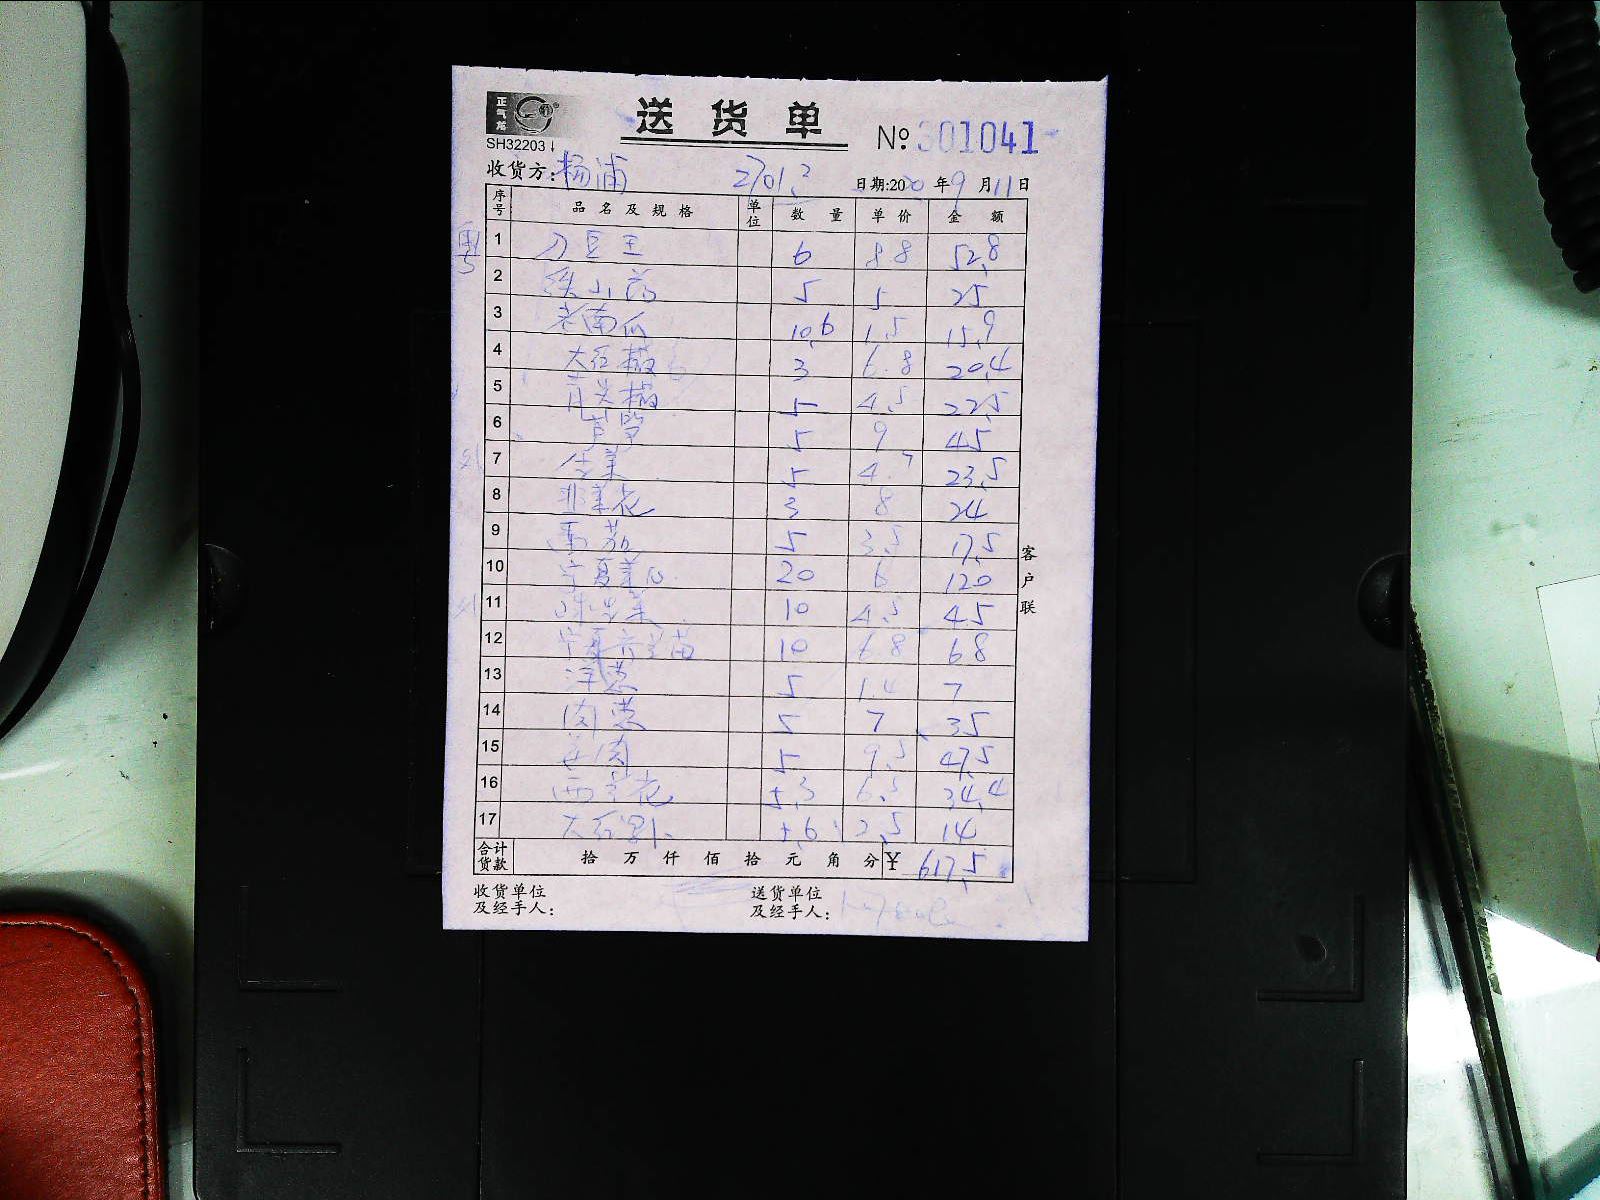 正气塔
送货单
SH32203
№ 301041
收货方：杨浦 2701.2 日期:2020年9月11日
序号 品名及规格 单位 数量 单价 金额
1 刀豆王 6 8.8 52.8
2 铁山药 5 5 25
3 老南瓜 10.6 1.5 15.9
4 大红椒 3 6.8 20.4
5 青尖椒 5 4.5 22.5
6 5 9 45
7 5 4.7 23.5
8 韭菜花 3 8 24
9 番茄 5 3.5 17.5
10 宁夏菜心 20 6 120
11 10 4.5 45
12 宁夏 苗 10 6.8 68
13 洋葱 5 1.4 7
14 肉葱 5 7 35
15 肉 5 9.5 47.5
16 西兰花 5.3 6.5 34.4
17 大红 5.6 2.5 14
合计货款 拾万仟佰拾元角分 ¥ 617.5
客户联
收货单位及经手人：
送货单位及经手人：